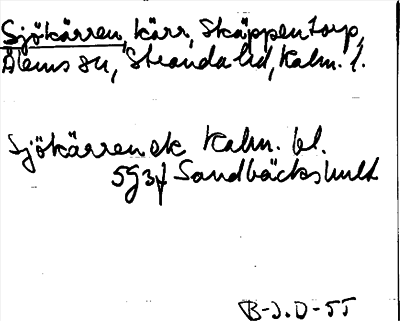 Sjökärren, kärr, Skäppentorp,
Ålems sn, Stranda hd, Kalm. l.
Sjökärren ek Kalm. bl.
5G3f Sandbäckshult
B-J.D-55